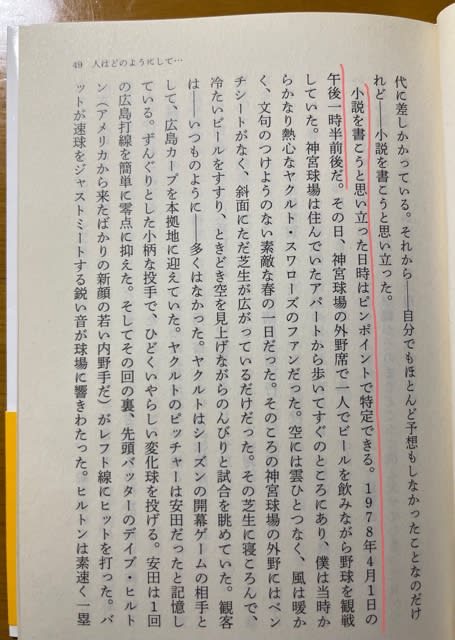 49 人はどのようにして…
代に差しかかっている。それから――自分でもほとんど予想もしなかったことなのだけ
れど――小説を書こうと思い立った。
小説を書こうと思い立った日時はピンポイントで特定できる。1978年4月1日の
午後一時半前後だ。その日、神宮球場の外野席で一人でビールを飲みながら野球を観戦
していた。神宮球場は住んでいたアパートから歩いてすぐのところにあり、僕は当時か
らかなり熱心なヤクルト・スワローズのファンだった。空には雲ひとつなく、風は暖か
く、文句のつけようのない素敵な春の一日だった。そのころの神宮球場の外野にはベン
チシートがなく、斜面にただ芝生が広がっているだけだった。その芝生に寝ころんで、
冷たいビールをすすり、ときどき空を見上げながらのんびりと試合を眺めていた。観客
は――いつものように――多くはなかった。ヤクルトはシーズンの開幕ゲームの相手と
して、広島カープを本拠地に迎えていた。ヤクルトのピッチャーは安田だったと記憶し
ている。ずんぐりとした小柄な投手で、ひどくいやらしい変化球を投げる。安田は1回
の広島打線を簡単に零点に抑えた。そしてその回の裏、先頭バッターのデイブ・ヒルト
ン（アメリカから来たばかりの新顔の若い内野手だ）がレフト線にヒットを打った。バ
ットが速球をジャストミートする鋭い音が球場に響きわたった。ヒルトンは素速く一塁